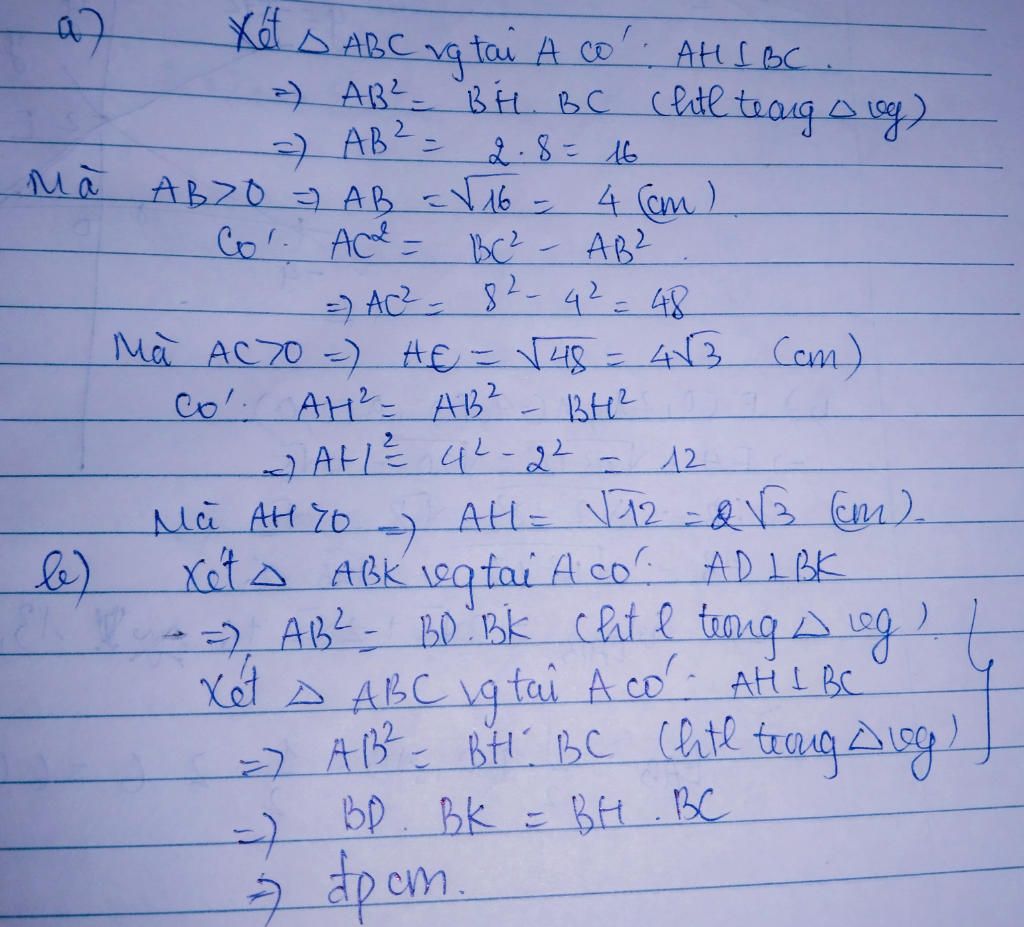 a) Xét △ ABC vg tại A có: AH ⊥ BC.
=) AB² = BH. BC (htl trong △ vg)
=) AB² = 2.8 = 16
Mà AB>0 => AB = √16 = 4 (cm)
Có: AC² = BC² - AB².
=) AC² = 8² - 4² = 48
Mà AC>0 =) AC = √48 = 4√3 (cm)
Có: AH² = AB² - BH²
=) AH² = 4² - 2² = 12
Mà AH>0 => AH = √12 = 2√3 (cm).
b) Xét △ ABK vg tại A có: AD ⊥ BK
=) AB² = BD. BK (htl trong △ vg)
Xét △ ABC vg tại A có: AH ⊥ BC
=) AB² = BH. BC (htl trong △ vg)
=) BD. BK = BH. BC
=) đpcm.